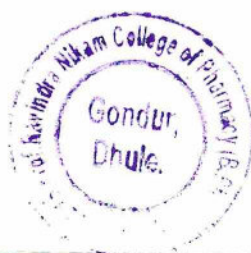 Ravindra Nikam College of Pharmacy
Gondur,
Dhule.